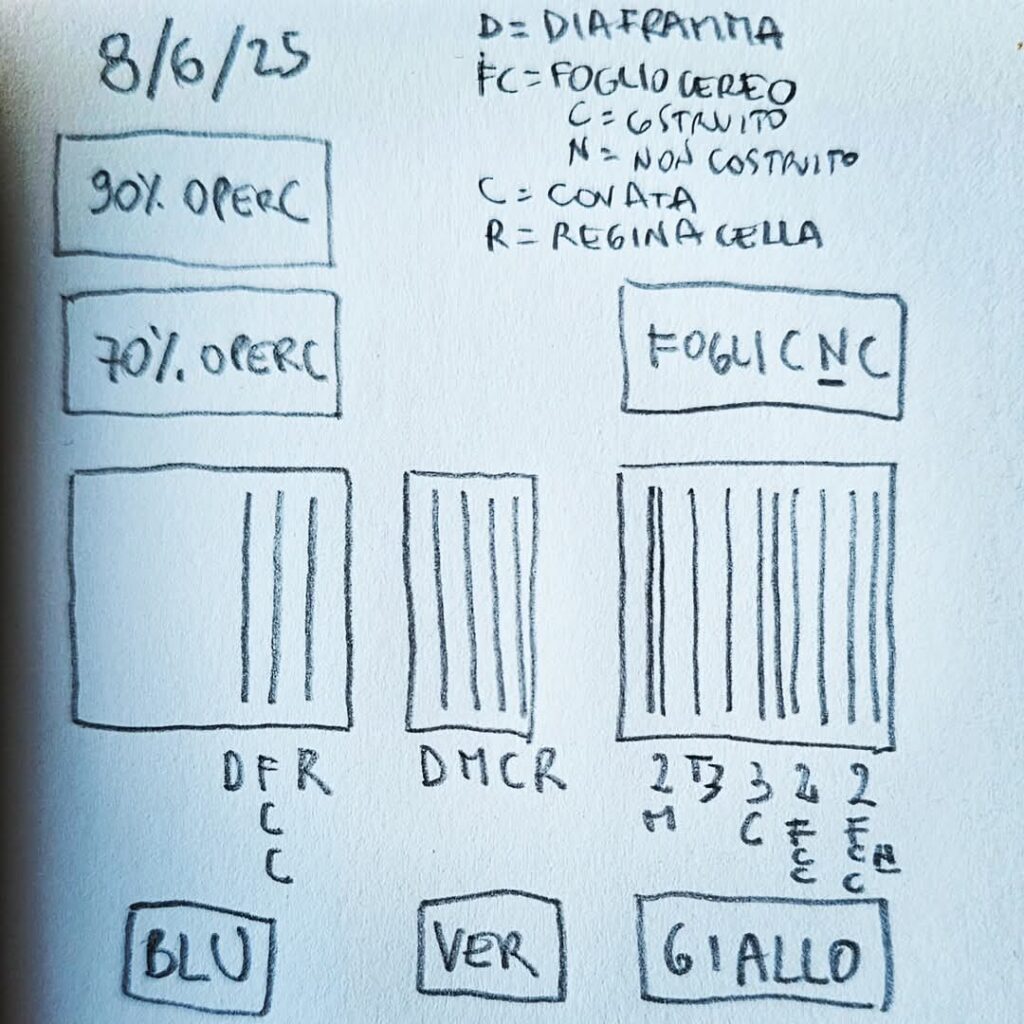 8/6/25
D = DIAFRAMMA
FC = FOGLIO CEREO
C = COSTRUITO
N = NON COSTRUITO
C = COVATA
R = REGINA CELLA
90% OPERC
70% OPERC
FOGLI C N C
D F R
C
C
D M C R
2 3 2 2
M C F F
C C N
C C
BLU
VER
GIALLO